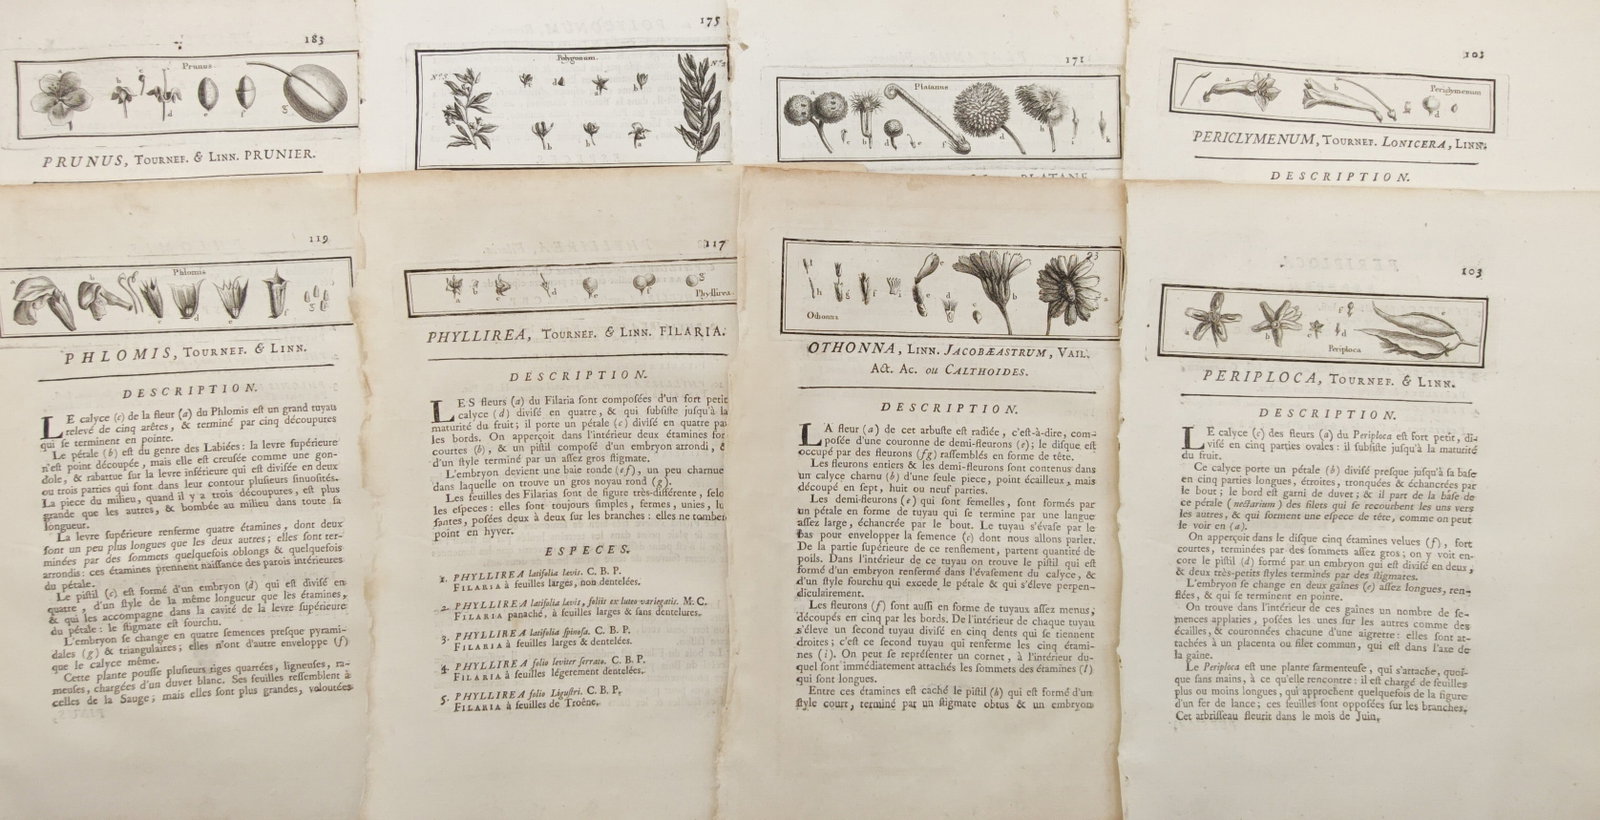 183
Prunus
PRUNUS, TOURNEF. & LINN. PRUNIER.
175
Polygonum.
171
Platanus
PLATANE
103
Periclymenum
PERICLYMENUM, TOURNEF. LONICERA, LINN.
DESCRIPTION.
119
Phlomis
PHLOMIS, TOURNEF. & LINN.
DESCRIPTION.
LE calyce (c) de la fleur (a) du Phlomis eſt un grand tuyau
relevé de cinq arêtes, & terminé par cinq découpures
qui ſe terminent en pointe.
Le pétale (b) eſt du genre des Labiées: la levre ſupérieure
n'eſt point découpée, mais elle eſt creuſée comme une gon-
dole, & rabattue ſur la levre inférieure qui eſt diviſée en deux
ou trois parties qui ſont dans leur contour pluſieurs ſinuoſités.
La piece du milieu, quand il y a trois découpures, eſt plus
grande que les autres, & bombée au milieu dans toute ſa
longueur.
La levre ſupérieure renferme quatre étamines, dont deux
ſont un peu plus longues que les deux autres; elles ſont ter-
minées par des ſommets quelquefois oblongs & quelquefois
arrondis: ces étamines prennent naiſſance des parois intérieures
du pétale.
Le piſtil (c) eſt formé d'un embryon (d) qui eſt diviſé en
quatre, d'un ſtyle de la même longueur que les étamines,
& qui les accompagne dans la cavité de la levre ſupérieure
du pétale: le ſtigmate eſt fourchu.
L'embryon ſe change en quatre ſemences preſque pyrami-
dales (g) & triangulaires; elles n'ont d'autre enveloppe (f)
que le calyce même.
Cette plante pouſſe pluſieurs tiges quarrées, ligneuſes, ra-
meuſes, chargées d'un duvet blanc. Ses feuilles reſſemblent à
celles de la Sauge; mais elles ſont plus grandes, veloutées
117
Phyllirea.
PHYLLIREA, TOURNEF. & LINN. FILARIA.
DESCRIPTION.
LES fleurs (a) du Filaria ſont compoſées d'un fort petit
calyce (d) diviſé en quatre, & qui ſubſiſte juſqu'à la
maturité du fruit; il porte un pétale (c) diviſé en quatre par
les bords. On apperçoit dans l'intérieur deux étamines fort
courtes (b), & un piſtil compoſé d'un embryon arrondi, &
d'un ſtyle terminé par un aſſez gros ſtigmate.
L'embryon devient une baie ronde (ef), un peu charnue
dans laquelle on trouve un gros noyau rond (g).
Les feuilles des Filarias ſont de figure très-différente, ſelo
les eſpeces: elles ſont toujours ſimples, fermes, unies, lu
ſantes, poſées deux à deux ſur les branches: elles ne tomben
point en hyver.
ESPECES.
1. PHYLLIREA latifolia levis. C. B. P.
FILARIA à feuilles larges, non dentelées.
2. PHYLLIREA latifolia levis, foliis ex luteo variegatis. M. C.
FILARIA panaché, à feuilles larges & ſans dentelures.
3. PHYLLIREA latifolia ſpinoſa. C. B. P.
FILARIA à feuilles larges & dentelées.
4. PHYLLIREA folio leviter ſerrato. C. B. P.
FILARIA à feuilles légerement dentelées.
5. PHYLLIREA folio Liguſtri. C. B. P.
FILARIA à feuilles de Troêne.
93
Othonna
OTHONNA, LINN. JACOBÆASTRUM, VAIL.
Act. Ac. ou CALTHOIDES.
DESCRIPTION.
LA fleur (a) de cet arbuſte eſt radiée, c'eſt-à-dire, com-
poſée d'une couronne de demi-fleurons (e); le diſque eſt
occupé par des fleurons (fg) raſſemblés en forme de tête.
Les fleurons entiers & les demi-fleurons ſont contenus dans
un calyce charnu (b) d'une ſeule piece, point écailleux, mais
découpé en ſept, huit ou neuf parties.
Les demi-fleurons (e) qui ſont femelles, ſont formés par
un pétale en forme de tuyau qui ſe termine par une langue
aſſez large, échancrée par le bout. Le tuyau s'évaſe par le
bas pour envelopper la ſemence (c) dont nous allons parler.
De la partie ſupérieure de ce renflement, partent quantité de
poils. Dans l'intérieur de ce tuyau on trouve le piſtil qui eſt
formé d'un embryon renfermé dans l'évaſement du calyce, &
d'un ſtyle fourchu qui excede le pétale & qui s'éleve perpen-
diculairement.
Les fleurons (f) ſont auſſi en forme de tuyaux aſſez menus,
découpés en cinq par les bords. De l'intérieur de chaque tuyau
s'éleve un ſecond tuyau diviſé en cinq dents qui ſe tiennent
droites; c'eſt ce ſecond tuyau qui renferme les cinq étami-
nes (i). On peut ſe repréſenter un cornet, à l'intérieur du-
quel ſont immédiatement attachés les ſommets des étamines (l)
qui ſont longues.
Entre ces étamines eſt caché le piſtil (h) qui eſt formé d'un
ſtyle court, terminé par un ſtigmate obtus & un embryon
103
Periploca
PERIPLOCA, TOURNEF. & LINN.
DESCRIPTION.
LE calyce (c) des fleurs (a) du Periploca eſt fort petit, di-
viſé en cinq parties ovales: il ſubſiſte juſqu'à la maturité
du fruit.
Ce calyce porte un pétale (b) diviſé preſque juſqu'à ſa baſe
en cinq parties longues, étroites, tronquées & échancrées par
le bout; le bord eſt garni de duvet; & il part de la baſe de
ce pétale (nectarium) des filets qui ſe recourbent les uns vers
les autres, & qui forment une eſpece de tête, comme on peut
le voir en (a).
On apperçoit dans le diſque cinq étamines velues (f), fort
courtes, terminées par des ſommets aſſez gros; on y voit en-
core le piſtil (d) formé par un embryon eſt diviſé en deux,
& deux très-petits ſtyles terminés par des ſtigmates.
L'embryon ſe change en deux gaînes (e) aſſez longues, ren-
flées, & qui ſe terminent en pointe.
On trouve dans l'intérieur de ces gaînes un nombre de ſe-
mences applaties, poſées les unes ſur les autres comme des
écailles, & couronnées chacune d'une aigrette: elles ſont at-
tachées à un placenta ou filet commun, qui eſt dans l'axe de
la gaîne.
Le Periploca eſt une plante ſarmenteuſe, qui s'attache, quoi-
que ſans mains, à ce qu'elle rencontre: il eſt chargé de feuilles
plus ou moins longues, qui approchent quelquefois de la figure
d'un fer de lance; ces feuilles ſont oppoſées ſur les branches.
Cet arbriſſeau fleurit dans le mois de Juin.